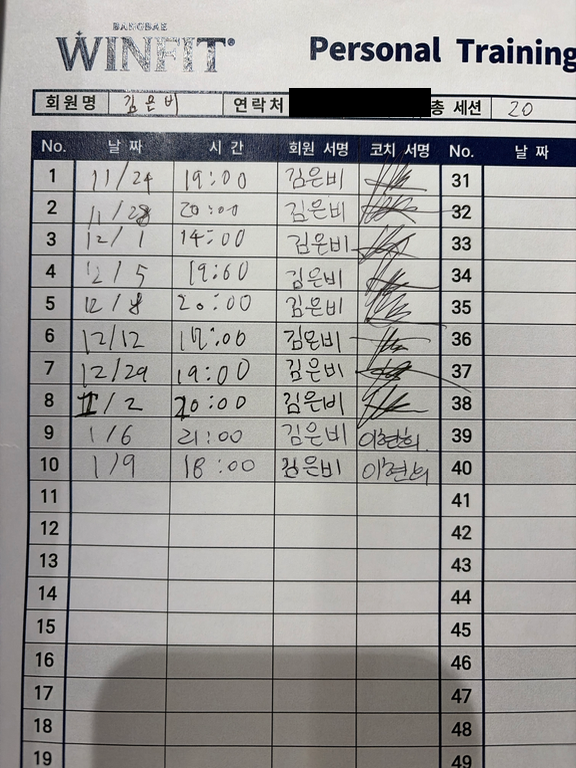 BANGBAE
WINFIT
Personal Training
회원명 김은비 연락처 총 세션 20
No. 날 짜 시 간 회원 서명 코치 서명 No. 날 짜
1 11/24 19:00 김은비 31
2 11/28 20:00 김은비 32
3 12/1 14:00 김은비 33
4 12/5 19:00 김은비 34
5 12/8 20:00 김은비 35
6 12/12 김은비 36
7 12/29 19:00 김은비 37
8 1/2 20:00 김은비 38
9 1/6 21:00 김은비 이현희 39
10 1/9 18:00 김은비 이현희 40
11 41
12 42
13 43
14 44
15 45
16 46
17 47
18 48
19 49